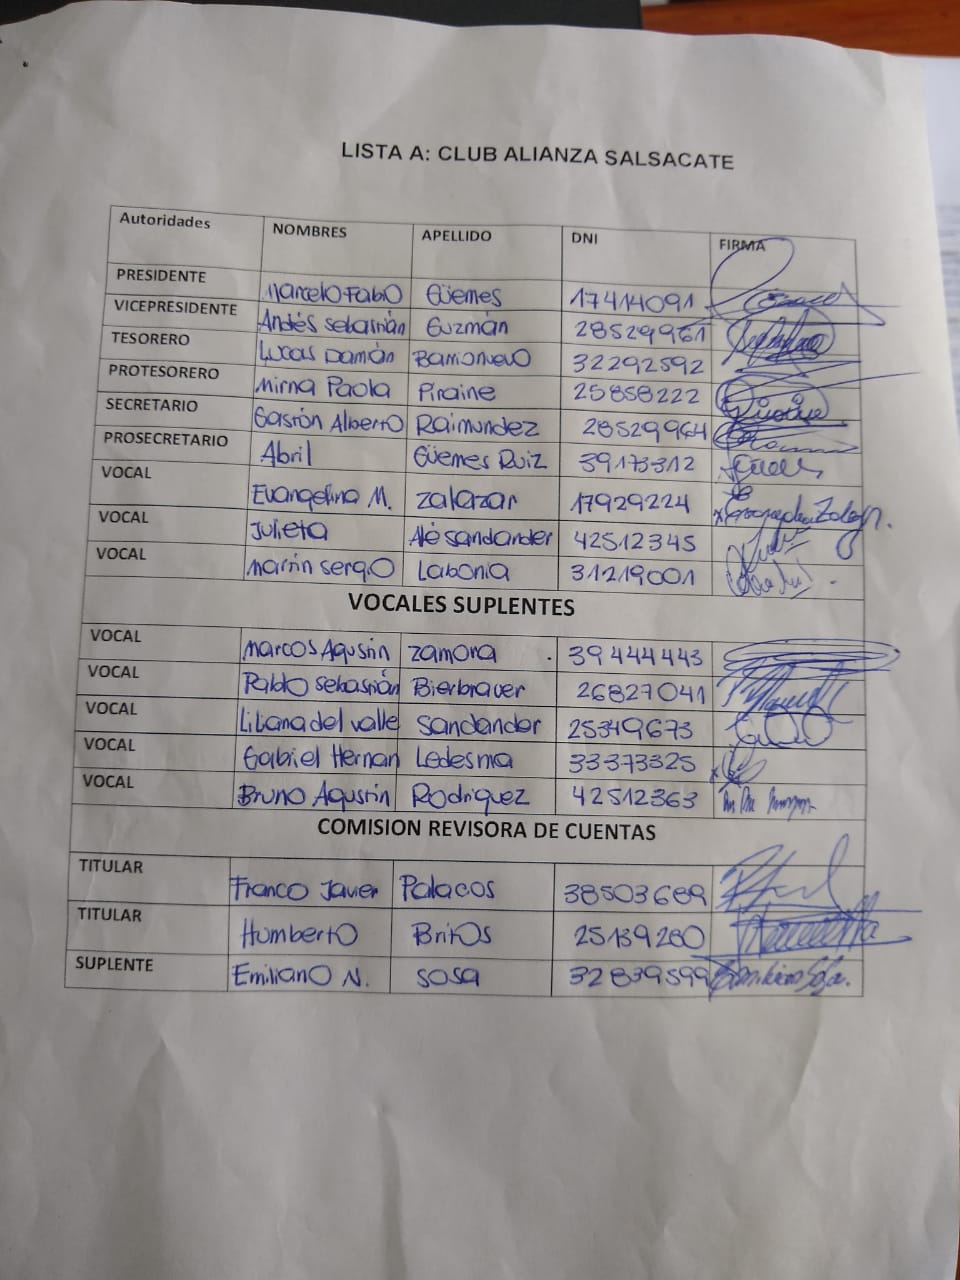 LISTA A: CLUB ALIANZA SALSACATE
Autoridades NOMBRES APELLIDO DNI FIRMA
PRESIDENTE Marcelo Fabio Güemes 17414091
VICEPRESIDENTE Andés sebastián Guzmán 28529961
TESORERO Lucas Damián Barrionuevo 32292592
PROTESORERO Mirna Paola Piraine 25858222
SECRETARIO Gastón Alberto Raimundez 28529964
PROSECRETARIO Abril Güemes Ruiz 39173312
VOCAL Evangelina M. Zalazar 17929224
VOCAL Julieta Alésandander 42512345
VOCAL Martín sergio Labonia 31219001
VOCALES SUPLENTES
VOCAL Marcos Agustín Zamora 39444443
VOCAL Pablo sebastián Bierbraver 26827041
VOCAL Liliana del valle Sandander 25349673
VOCAL Gabriel Hernan Ledesma 33373325
VOCAL Bruno Agustín Rodriguez 42512363
COMISION REVISORA DE CUENTAS
TITULAR Franco Javier Palacos 38503689
TITULAR Humberto Britos 25139280
SUPLENTE Emiliano N. Sosa 32839599 Emiliano Sosa.